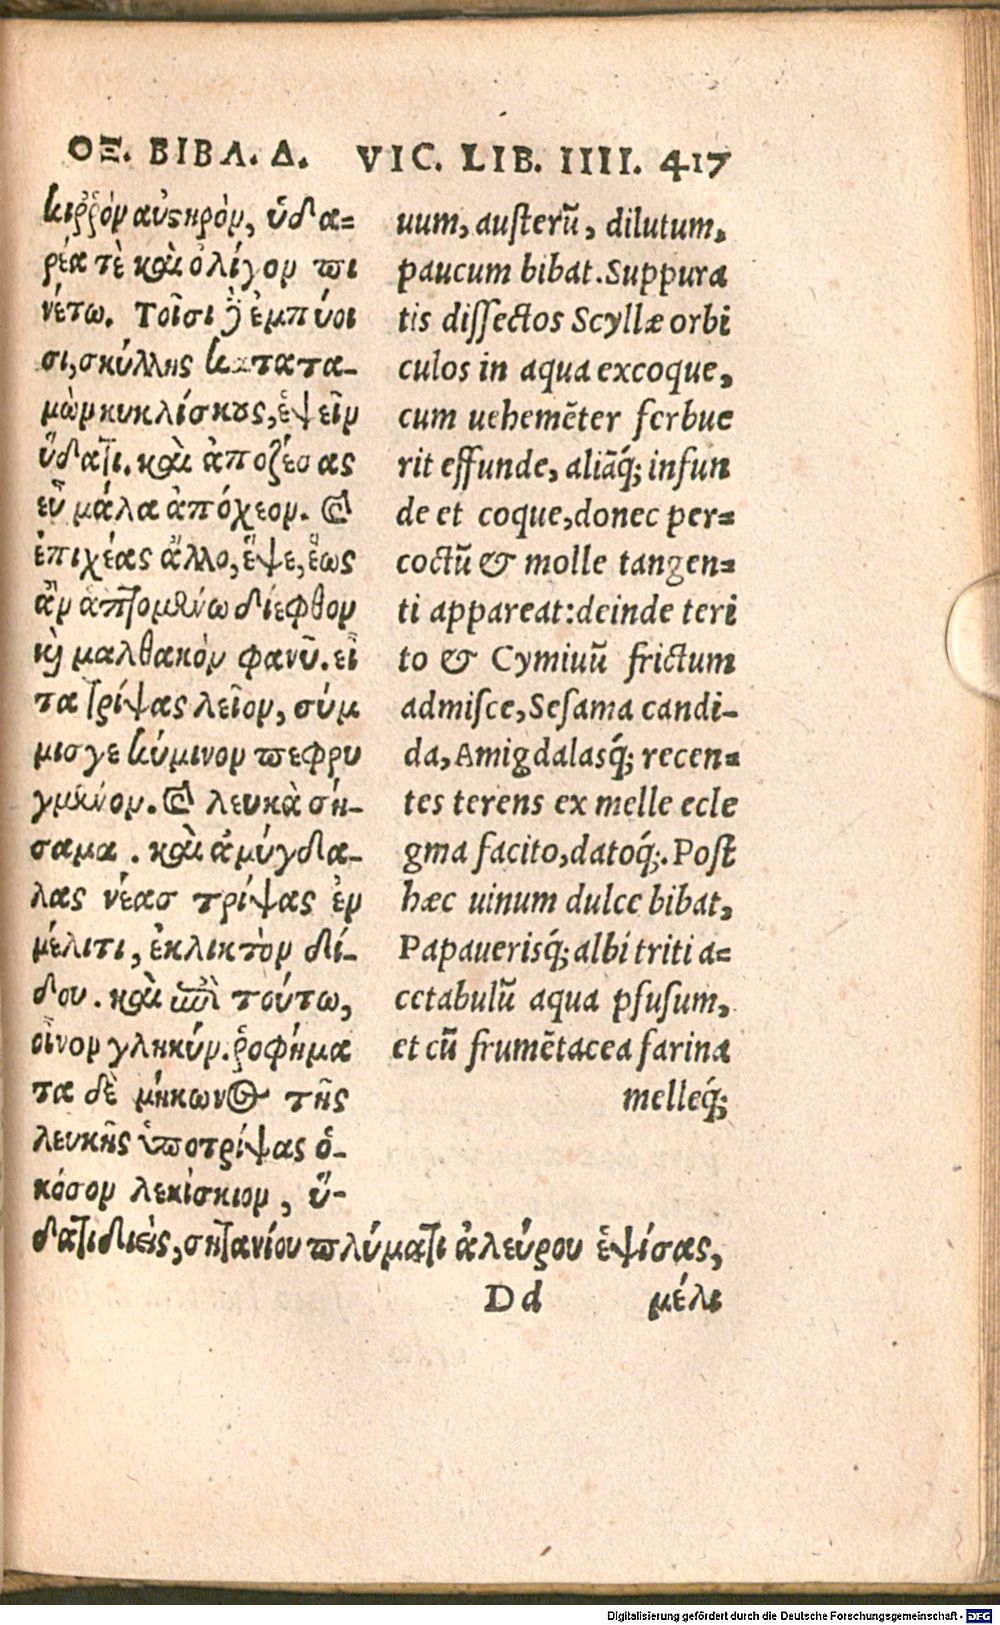 ΟΞ. ΒΙΒΛ. Δ. VIC. LIB. IIII. 417
κιῤῥὸν αὐϛηρὸν, ὑδα=
ρέα τὲ καὶ ὀλίγον πι
νέτω. Τοῖσι δὲ ἐμπύοι
σι, σκύλλης κατατα-
μὼν κυκλίσκους, ἑψεῖν
ὕδατι. καὶ ἀποζέσας
εὖ μάλα ἀπόχεον. καὶ
ἐπιχέας ἄλλο, ἕψε, ἕως
ἂν ἁπτομένῳ δίεφθον
καὶ μαλθακὸν φανῇ. εἶ
τα τρίψας λεῖον, σύμ
μισγε κύμινον πεφρυ
γμένον. καὶ λευκὰ σή-
σαμα . καὶ ἀμύγδα-
λας νέας τρίψας ἐν
μέλιτι, ἐκλικτὸν δί-
δου. καὶ ἐπὶ τούτῳ,
οἶνον γληκύν. ῥοφήμα
τα δὲ μήκωνος τῆς
λευκῆς ὑποτρίψας ὁ-
κόσον λεκίσκιον, ὕ-
δατι διεὶς, σητανίου πλύματι ἀλεύρου ἑψίσας,
uum, auſterũ, dilutum,
paucum bibat. Suppura
tis diſſectos Scyllæ orbi
culos in aqua excoque,
cum uehemẽter ferbue
rit effunde, aliãq́; infun
de et coque, donec per=
coctũ & molle tangen=
ti appareat: deinde teri
to & Cymiuũ frictum
admiſce, Seſama candi-
da, Amigdalasq́; recen=
tes terens ex melle ecle
gma facito, datoq́;. Poſt
hæc uinum dulce bibat,
Papauerisq́; albi triti a=
cetabulũ aqua pfuſum,
et cũ frumẽtacea farina
melleq́;
Dd μέλι
Digitalisierung gefördert durch die Deutsche Forschungsgemeinschaft - DFG